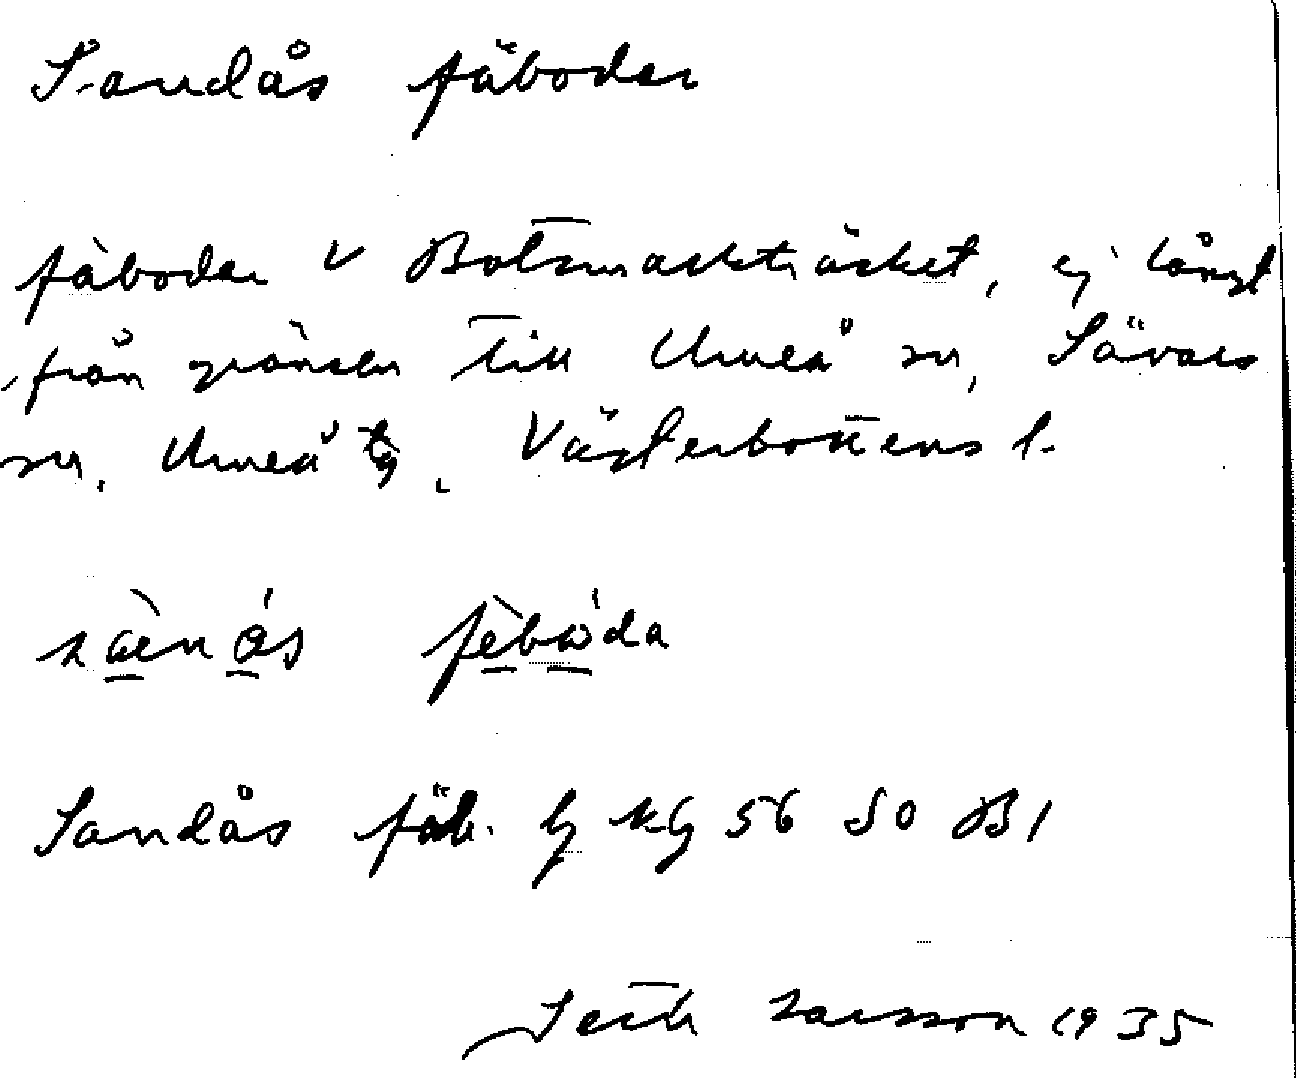 Sandås fäboder
fäboder V Botsmarkträsket, ej långt
från gränsen till Umeå sn, Sävars
sn, Umeå tg, Västerbottens l.
fèbóda
Sandås fäb. kg 56 SO B1
Larsson 1935